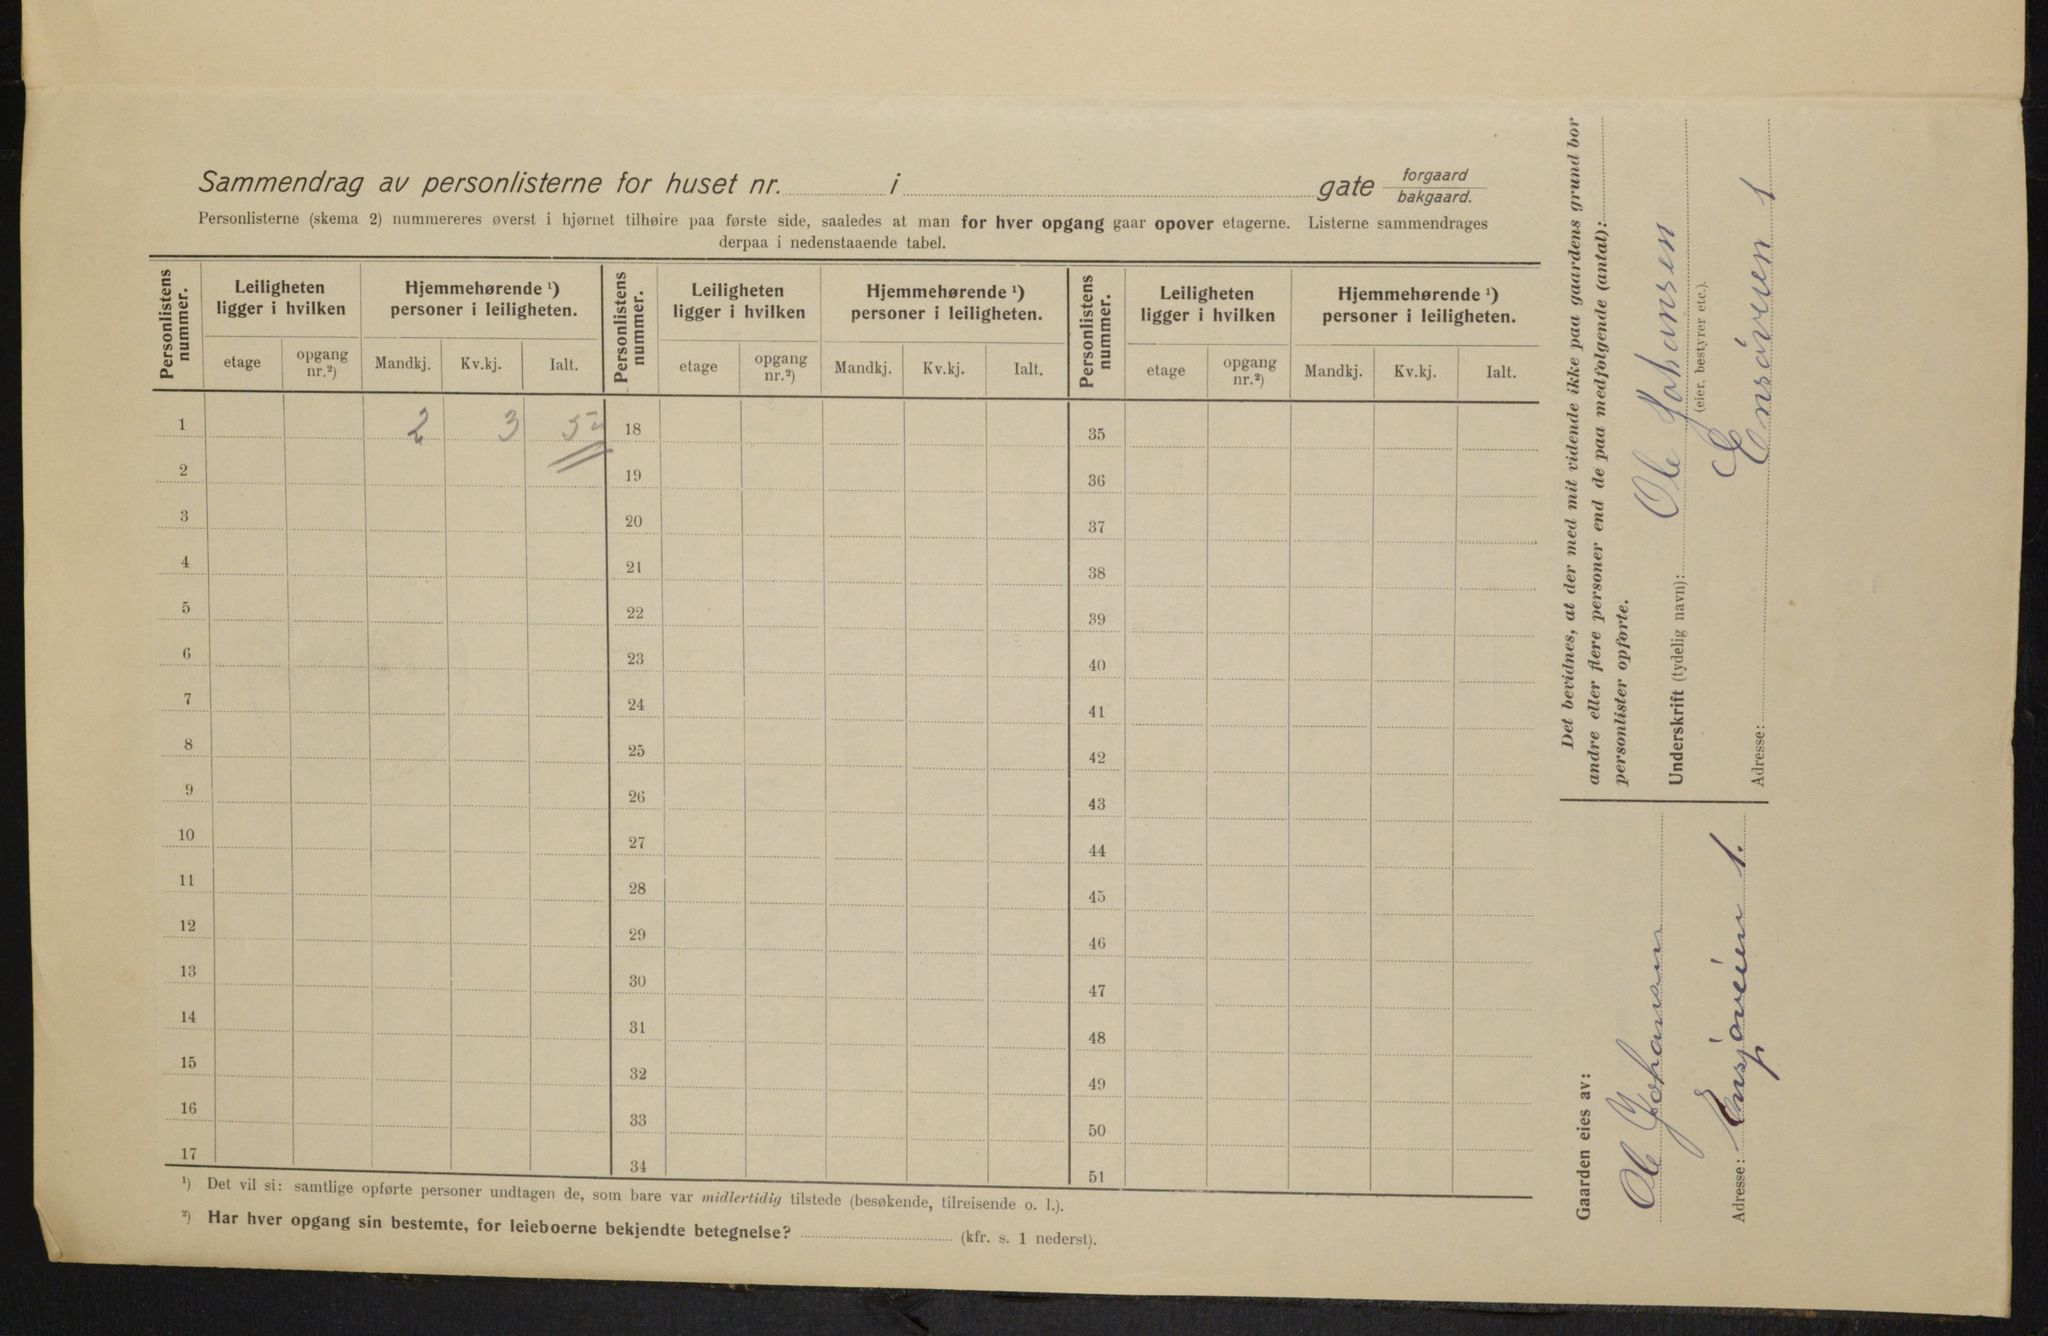 Sammendrag av personlisterne for huset nr. i gate forgaard bakgaard.
Personlisterne (skema 2) nummereres øverst i hjørnet tilhøire paa første side, saaledes at man for hver opgang gaar opover etagerne. Listerne sammendrages
derpaa i nedenstaaende tabel.
Personlistens nummer. Leiligheten ligger i hvilken etage opgang nr.²) Hjemmehørende ¹) personer i leiligheten. Mandkj. Kv.kj. Ialt.
Personlistens nummer. Leiligheten ligger i hvilken etage opgang nr.²) Hjemmehørende ¹) personer i leiligheten. Mandkj. Kv.kj. Ialt.
Personlistens nummer. Leiligheten ligger i hvilken etage opgang nr.²) Hjemmehørende ¹) personer i leiligheten. Mandkj. Kv.kj. Ialt.
1 2 3 5 18 35
2 19 36
3 20 37
4 21 38
5 22 39
6 23 40
7 24 41
8 25 42
9 26 43
10 27 44
11 28 45
12 29 46
13 30 47
14 31 48
15 32 49
16 33 50
17 34 51
¹) Det vil si: samtlige opførte personer undtagen de, som bare var midlertidig tilstede (besøkende, tilreisende o. l.).
²) Har hver opgang sin bestemte, for leieboerne bekjendte betegnelse? (kfr. s. 1 nederst).
Gaarden eies av:
Ole Johansen
Adresse: Ensjøveien 1.
Det bevidnes, at der med mit vidende ikke paa gaardens grund bor
andre eller flere personer end de paa medfølgende (antal):
personlister opførte.
Underskrift (tydelig navn): Ole Johansen
(eier, bestyrer etc.).
Adresse: Ensöveien 1